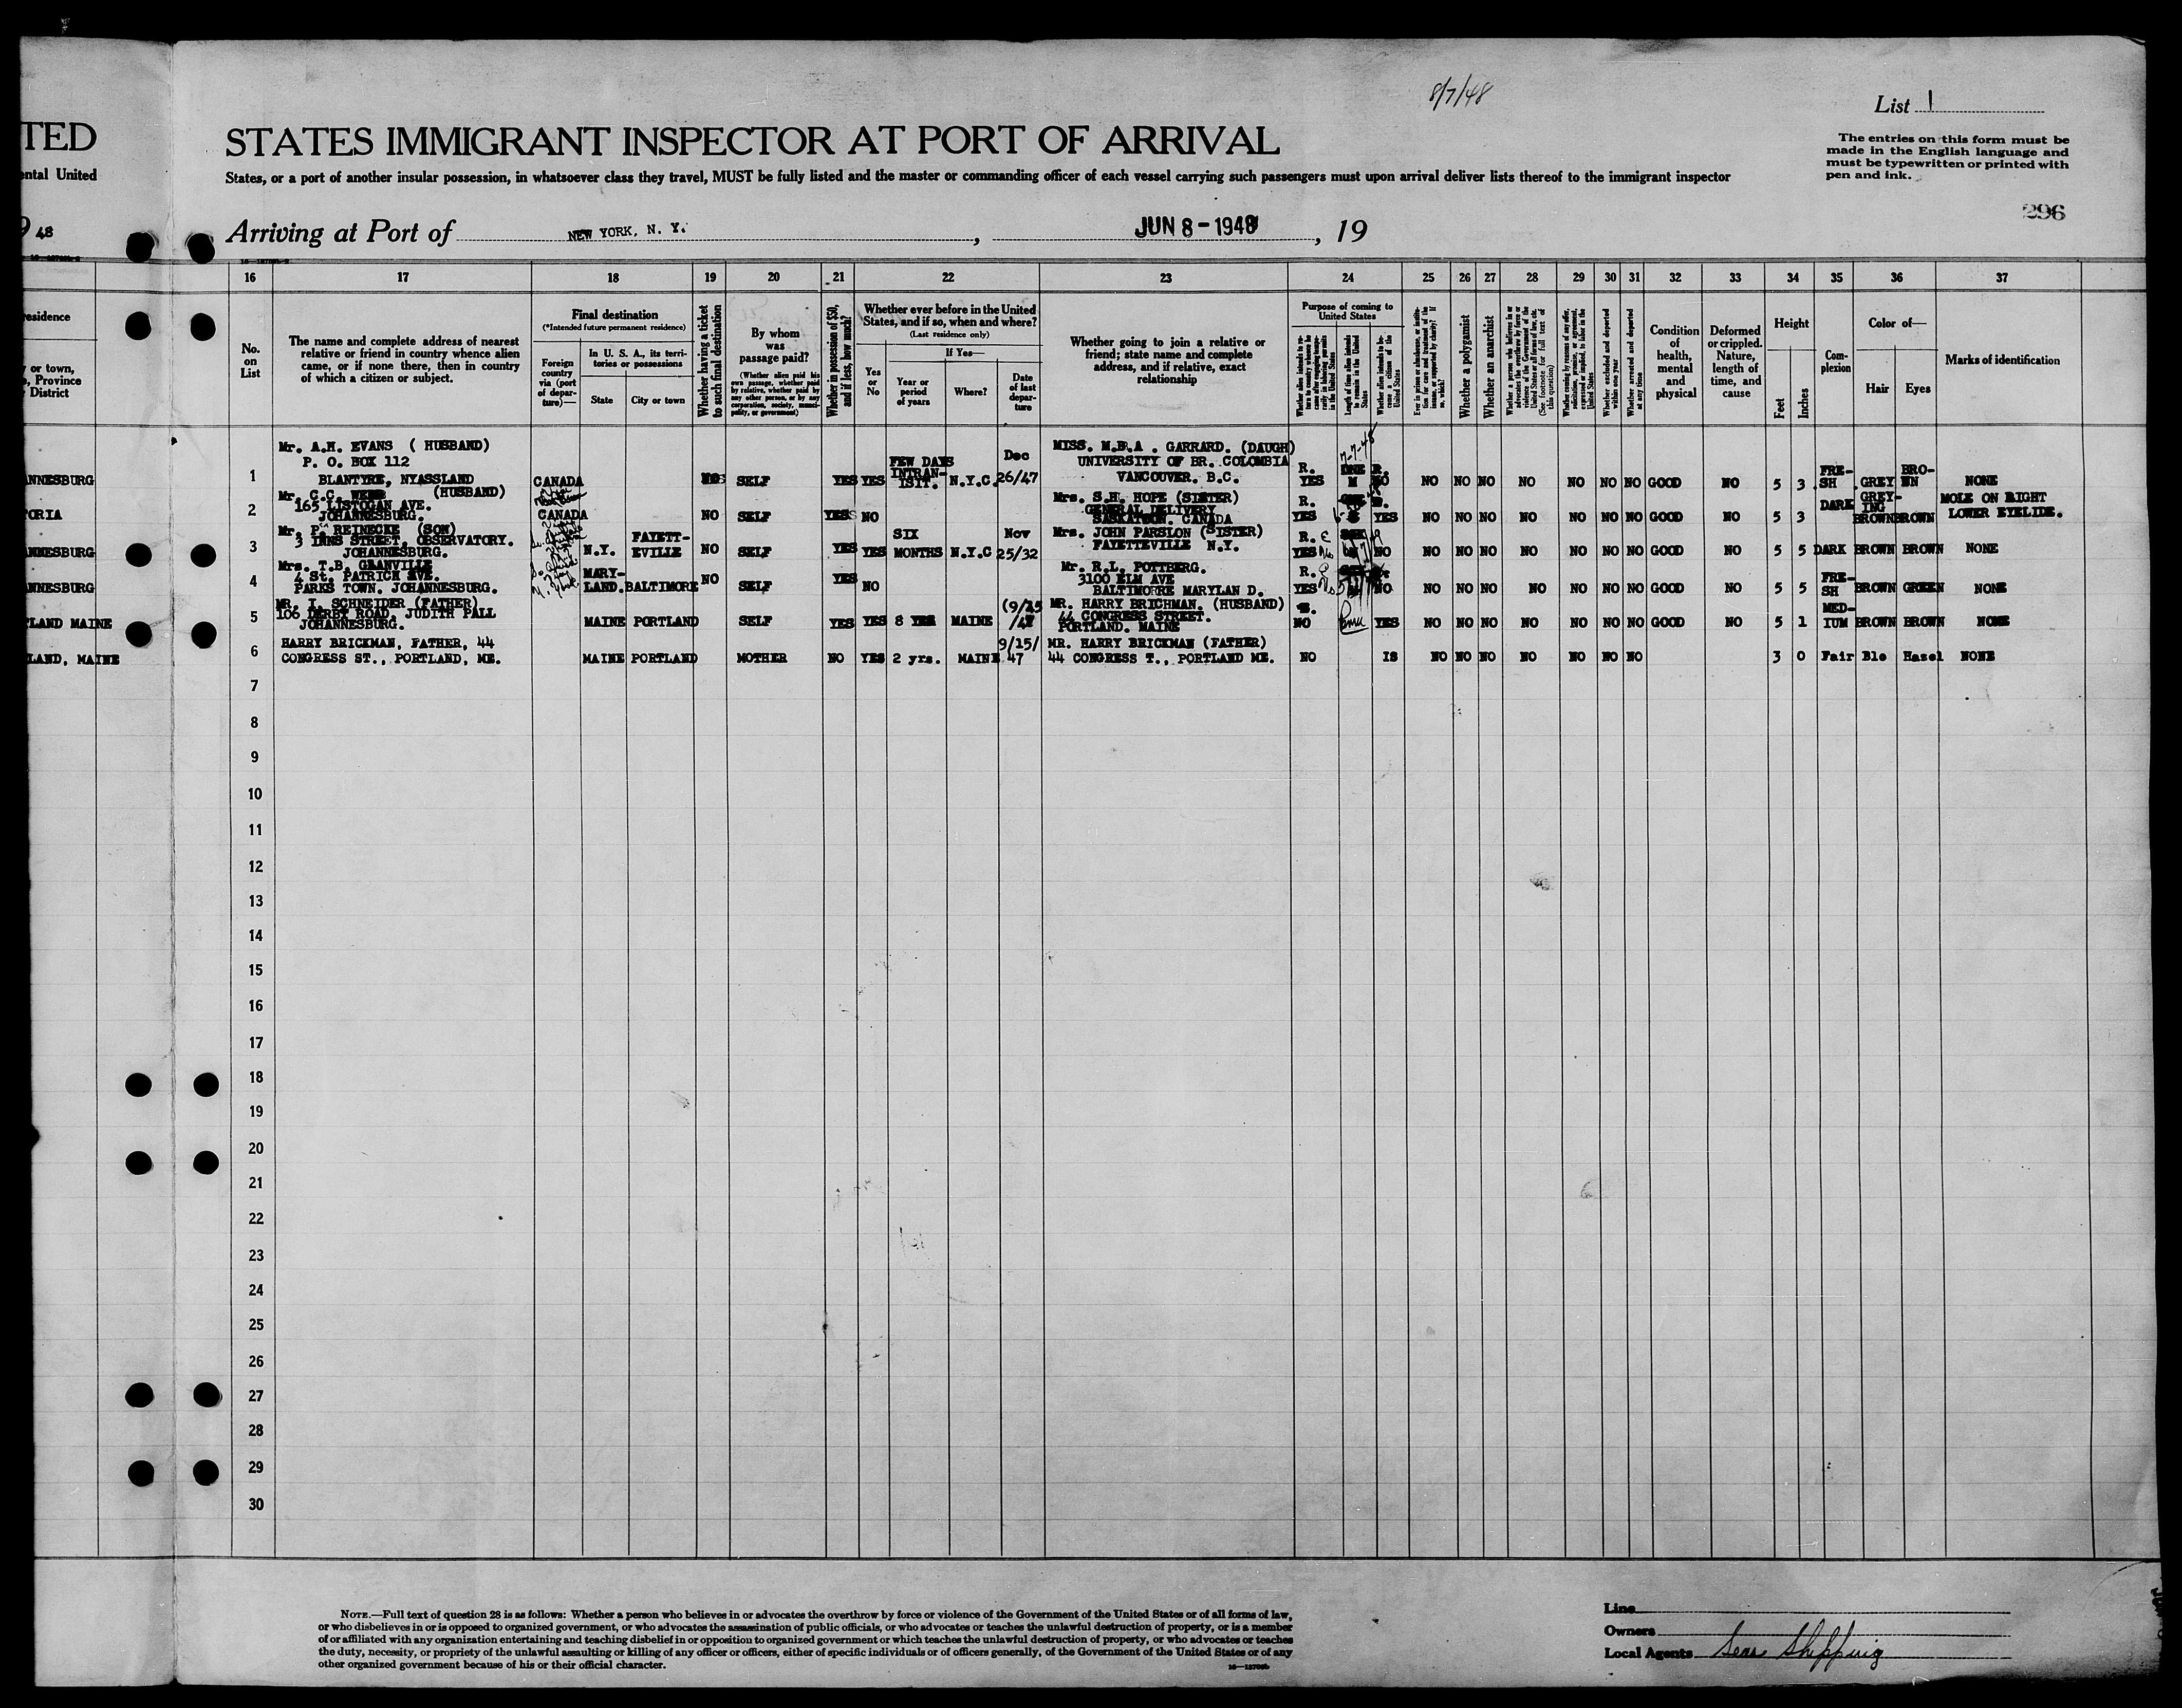 8/7/48
List 1
TED
STATES IMMIGRANT INSPECTOR AT PORT OF ARRIVAL
The entries on this form must be
made in the English language and
must be typewritten or printed with
pen and ink.
ental United
States, or a port of another insular possession, in whatsoever class they travel, MUST be fully listed and the master or commanding officer of each vessel carrying such passengers must upon arrival deliver lists thereof to the immigrant inspector
296
9 48
Arriving at Port of NEW YORK, N. Y. , JUN 8 - 1948 , 19
16 17 18 19 20 21 22 23 24 25 26 27 28 29 30 31 32 33 34 35 36 37
esidence
or town,
Province
District
No.
on
List
The name and complete address of nearest
relative or friend in country whence alien
came, or if none there, then in country
of which a citizen or subject.
Final destination
(*Intended future permanent residence)
Foreign
country
via (port
of depar-
ture)—
In U. S. A., its terri-
tories or possessions
State
City or town
Whether having a ticket
to such final destination
By whom
was
passage paid?
(Whether alien paid his
own passage, whether paid
by relative, whether paid by
any other person, or by any
corporation, society, munici-
pality, or government)
Whether in possession of $50,
and if less, how much?
Whether ever before in the United
States, and if so, when and where?
(Last residence only)
Yes
or
No
If Yes—
Year or
period
of years
Where?
Date
of last
depar-
ture
Whether going to join a relative or
friend; state name and complete
address, and if relative, exact
relationship
Purpose of coming to
United States
Length of time alien intends
to remain in the United
States
Whether alien intends to be-
come a citizen of the
United States
Whether a polygamist
Whether an anarchist
Whether excluded and deported
within one year
Whether arrested and deported
at any time
Condition
of
health,
mental
and
physical
Deformed
or crippled.
Nature,
length of
time, and
cause
Height
Feet
Inches
Com-
plexion
Color of—
Hair
Eyes
Marks of identification
NNESBURG
1
Mr. A.H. EVANS ( HUSBAND)
P. O. BOX 112
BLANTYRE, NYASSLAND
CANADA
NO
SELF
YES
YES
FEW DAYS
INTRAN-
ISIT.
N.Y.C.
Dec
26/47
MISS. M.B.A . GARRARD. (DAUGH)
UNIVERSITY OF BR. COLOMBIA
VANCOUVER. B.C.
R.
YES
ONE
M
7-7-48
R.
NO
NO NO NO NO NO NO NO GOOD NO 5 3
FRE-
SH
GREY
BRO-
WN
NONE
ORIA
2
Mr. C.C. WEBB (HUSBAND)
165 LISTOGAN AVE.
JOHANNESBURG.
CANADA
NO
SELF
YES
NO
Mrs. S.H. HOPE (SISTER)
GENERAL DELIVERY
SASKATOON. CANADA
R.
YES
YES
NO NO NO NO NO NO NO GOOD NO 5 3
DARK
GREY-
ING
BROWN
BROWN
MOLE ON RIGHT
LOWER EYELIDE.
NNESBURG
3
Mr. P. REINECKE (SON)
3 INNS STREET, OBSERVATORY.
JOHANNESBURG.
N.Y.
FAYETT-
EVILLE
NO
SELF
YES
YES
SIX
MONTHS
N.Y.C
Nov
25/32
Mrs. JOHN PARSLON (SISTER)
FAYETTEVILLE N.Y.
R.
YES
NO
NO NO NO NO NO NO NO GOOD NO 5 5 DARK BROWN BROWN NONE
NNESBURG
4
Mrs. T.B. GLANVILLE
4 St. PATRICK AVE.
PARKS TOWN. JOHANNESBURG.
MARY-
LAND.
BALTIMORE
NO
SELF
YES
NO
Mr. R.L. POTTBERG.
3100 ELM AVE
BALTIMORE MARYLAN D.
R.
YES
NO
NO NO NO NO NO NO NO GOOD NO 5 5
FRE-
SH
BROWN GREEN NONE
LAND MAINE
5
MR. I. SCHNEIDER (FATHER)
106 DERBY ROAD, JUDITH PALL
JOHANNESBURG.
MAINE PORTLAND SELF YES YES 8 YRS MAINE
(9/15
/47
MR. HARRY BRICHMAN. (HUSBAND)
44 CONGRESS STREET.
PORTLAND. MAINE
NO
YES
NO NO NO NO NO NO NO GOOD NO 5 1
MED-
IUM
BROWN BROWN NONE
LAND, MAINE
6
HARRY BRICKMAN, FATHER, 44
CONGRESS ST., PORTLAND, ME.
MAINE PORTLAND MOTHER NO YES 2 yrs. MAINE
9/15/
47
MR. HARRY BRICKMAN (FATHER)
44 CONGRESS T., PORTLAND ME.
NO IS NO NO NO NO NO NO NO 3 0 Fair Blo Hazel NONE
7
8
9
10
11
12
13
14
15
16
17
18
19
20
21
22
23
24
25
26
27
28
29
30
NOTE.—Full text of question 28 is as follows: Whether a person who believes in or advocates the overthrow by force or violence of the Government of the United States or of all forms of law,
or who disbelieves in or is opposed to organized government, or who advocates the assassination of public officials, or who advocates or teaches the unlawful destruction of property, or is a member
of or affiliated with any organization entertaining and teaching disbelief in or opposition to organized government or which teaches the unlawful destruction of property, or who advocates or teaches
the duty, necessity, or propriety of the unlawful assaulting or killing of any officer or officers, either of specific individuals or of officers generally, of the Government of the United States or of any
other organized government because of his or their official character.
Line
Owners
Local Agents Seas Shipping